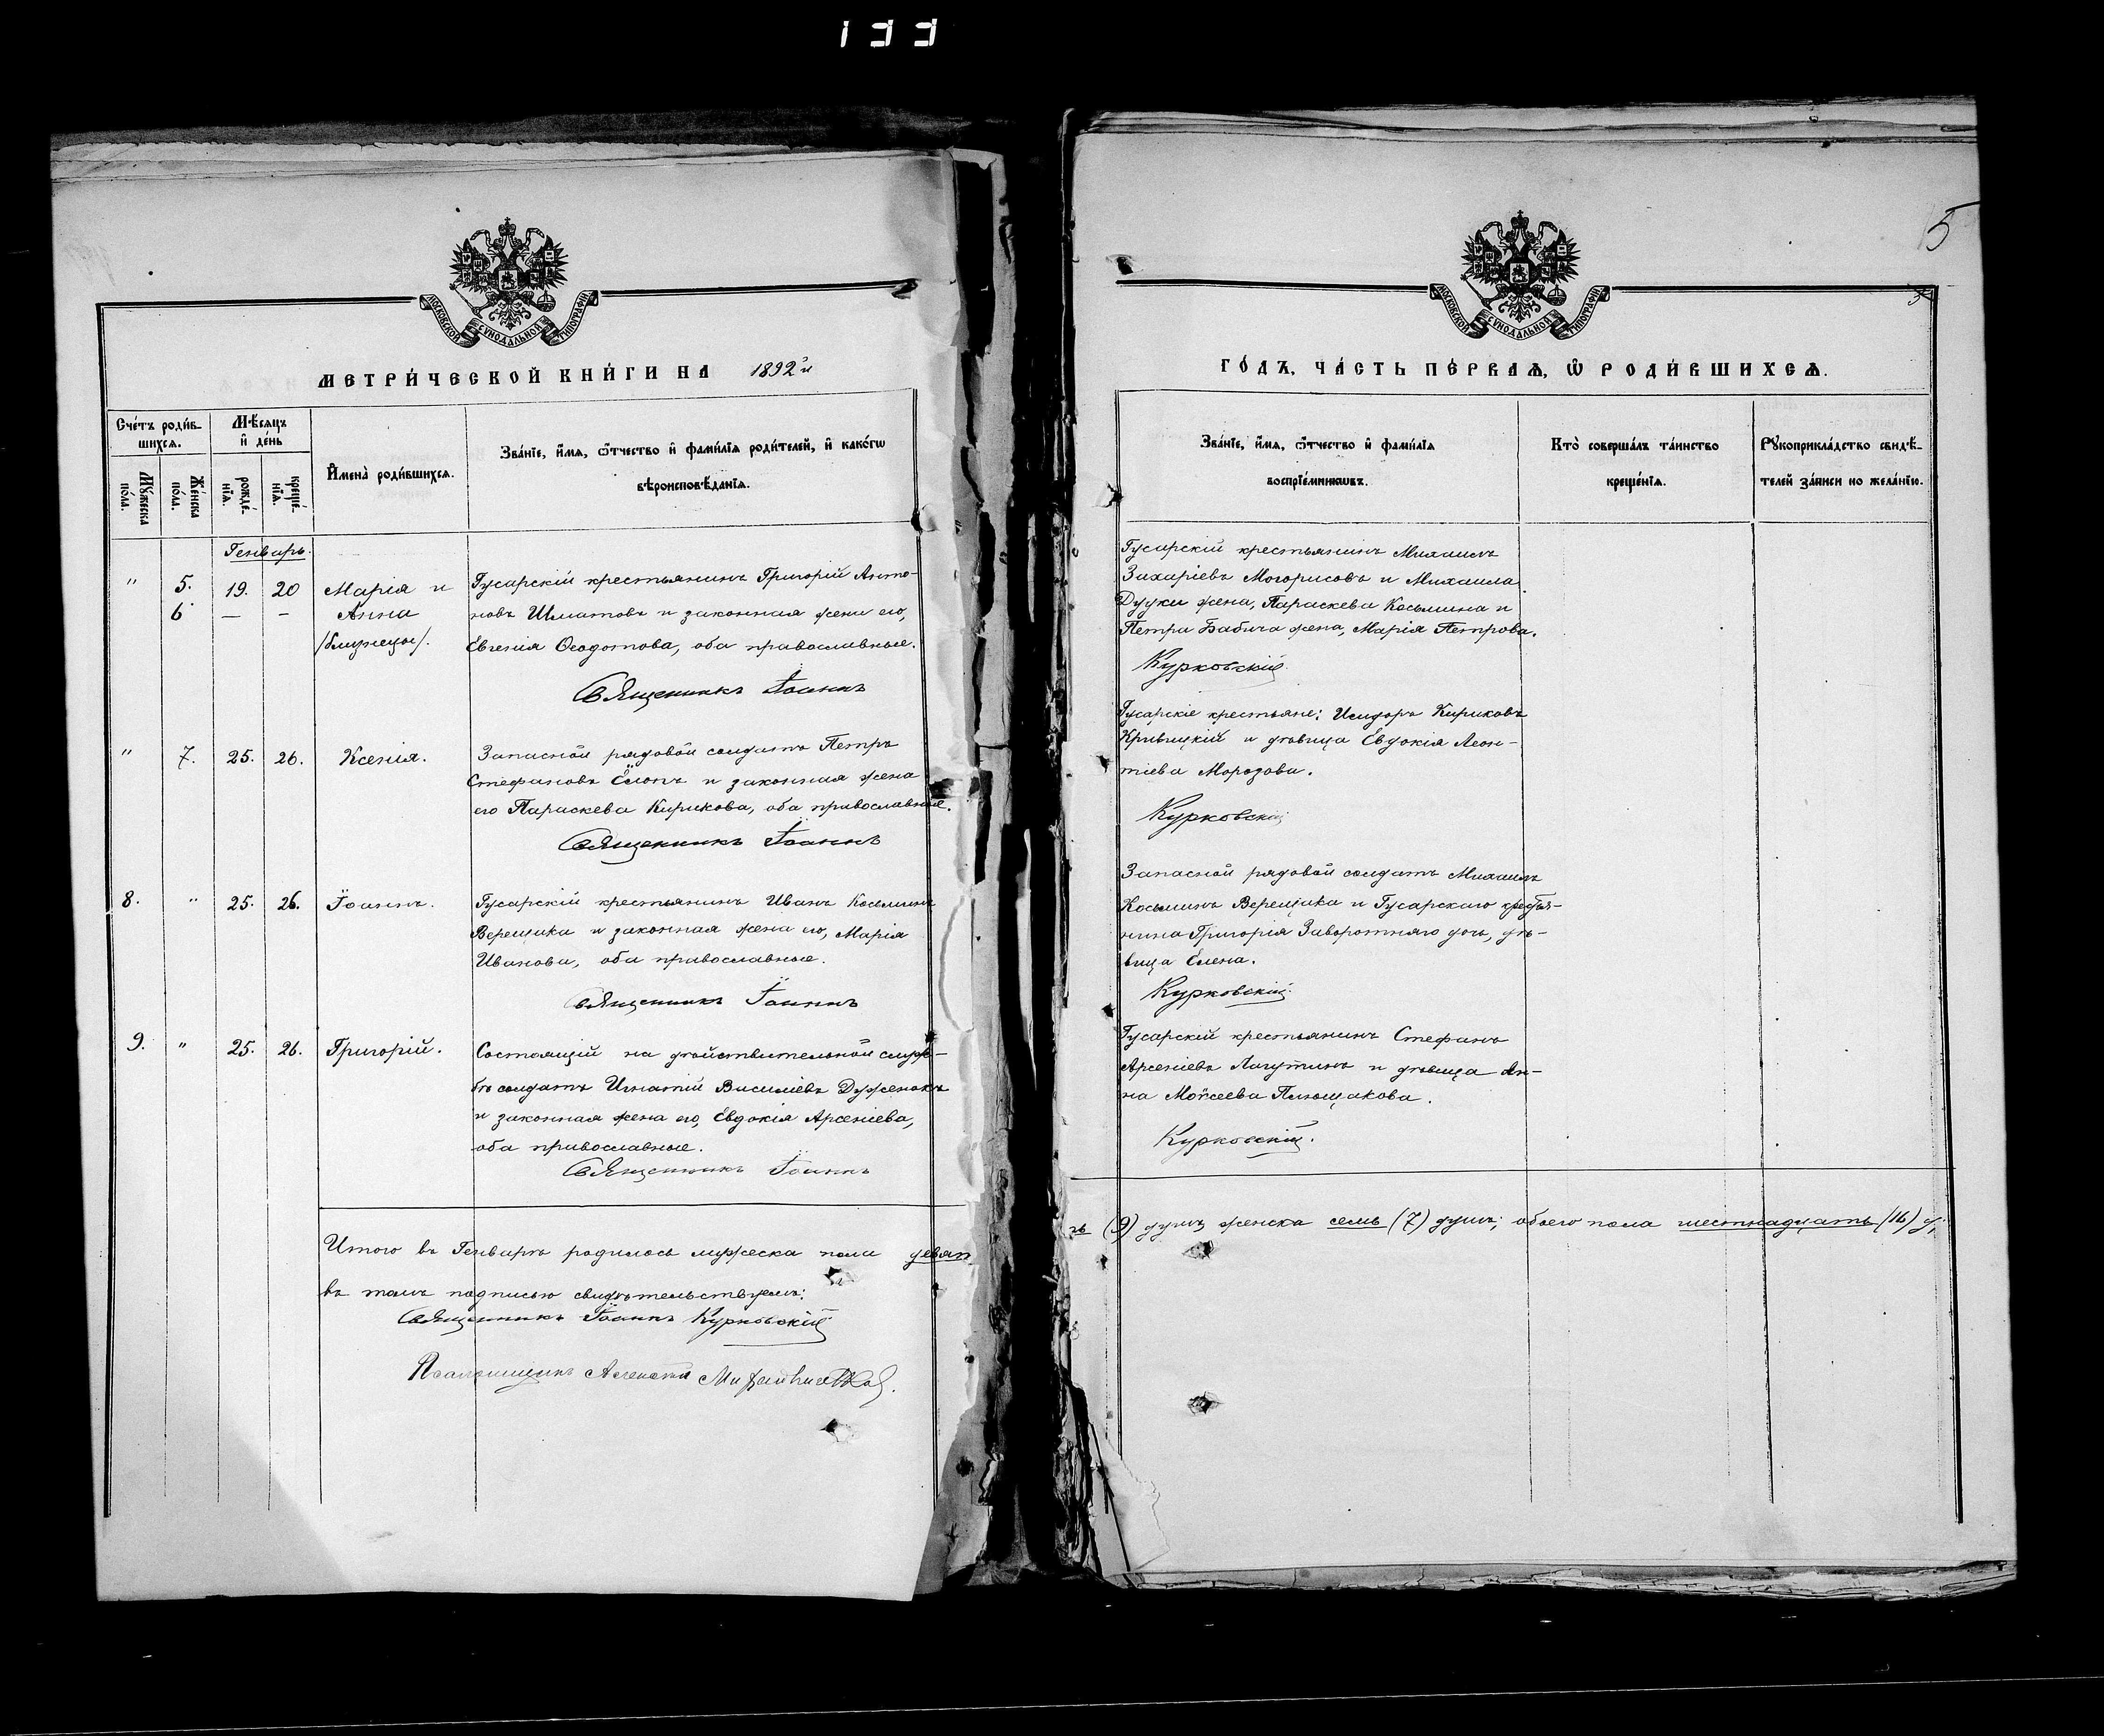 133
МОСКОВСКОЙ СѴНОДАЛЬНОЙ ТИПОГРАФІИ
МЕТРИ́ЧЕСКОЙ КНИ́ГИ НА 1892й
Сче́тъ роди́в-
шихсѧ.
Мѣ́сѧцъ
и҆ де́нь
Мꙋ́жеска по́ла.
Же́нска по́ла.
рожде́-
нїѧ.
креще́-
нїѧ.
И҆мена̀ роди́вшихсѧ.
Зва́нїе, и҆́мѧ, ѻ҆́тчество и҆ фами́лїѧ роди́телей, и҆ како́гѡ
вѣроисповѣ́данїѧ.
Генварь.
" 5. 19. 20 Марія и
6 — — Анна
/близнецы/.
Гусарскій крестьянинъ Григорій Анто-
новъ Шматовъ и законная жена его,
Евгенія Ѳеодотова, оба православные.
Священникъ Іоаннъ
" 7. 25. 26. Ксенія.
Запасной рядовой солдатъ Петръ
Стефановъ Ёлопъ и законная жена
его Параскева Кирикова, оба православные.
Священникъ Іоаннъ
8. " 25. 26. Іоаннъ.
Гусарскій крестьянинъ Иванъ Косьминъ
Верещака и законная жена его, Марія
Иванова, оба православные.
Священникъ Іоаннъ
9. " 25. 26. Григорій.
Состоящій на дѣйствительной служ-
бѣ солдатъ Игнатій Василіевъ Дуженокъ
и законная жена его, Евдокія Арсеніева,
оба православные.
Священникъ Іоаннъ
Итого въ Генварѣ родилось мужеска пола девят
въ томъ подписью свидѣтельствуемъ:
Священникъ Іоаннъ Курковскій
Псаломщикъ
5
МОСКОВСКОЙ СѴНОДАЛЬНОЙ ТИПОГРАФІИ
ГО́ДЪ, ЧА́СТЬ ПЕ́РВАѦ, Ѡ҆ РОДИ́ВШИХСѦ.
Зва́нїе, и҆́мѧ, ѻ҆́тчество и҆ фами́лїѧ
воспрїе́мникѡвъ.
Кто̀ соверша́лъ та́инство
креще́нїѧ.
Рꙋкоприкла́дство свидѣ́-
телей за́писи по жела́нїю.
Гусарскій крестьянинъ Михаилъ
Захаріевъ Могорисовъ и Михаила
Дудки жена, Параскева Косьмина и
Петра Бабича жена, Марія Петрова.
Курковскій
Гусарскіе крестьяне: Исидоръ Кириковъ
Кривицкій и дѣвица Евдокія Леон-
тіева Морозова.
Курковскій
Запасной рядовой солдатъ Михаилъ
Косьминъ Верещака и Гусарскаго крестья-
нина Григорія Заворотняго дочь, дѣ-
вица Елена.
Курковскій
Гусарскій крестьянинъ Стефанъ
Арсеніевъ Лагутинъ и дѣвица Ан-
на Моѵсеева Плющакова.
Курковскій.
ть (9) душъ женска семь (7) душъ; обоего пола шестнадцать (16) д;